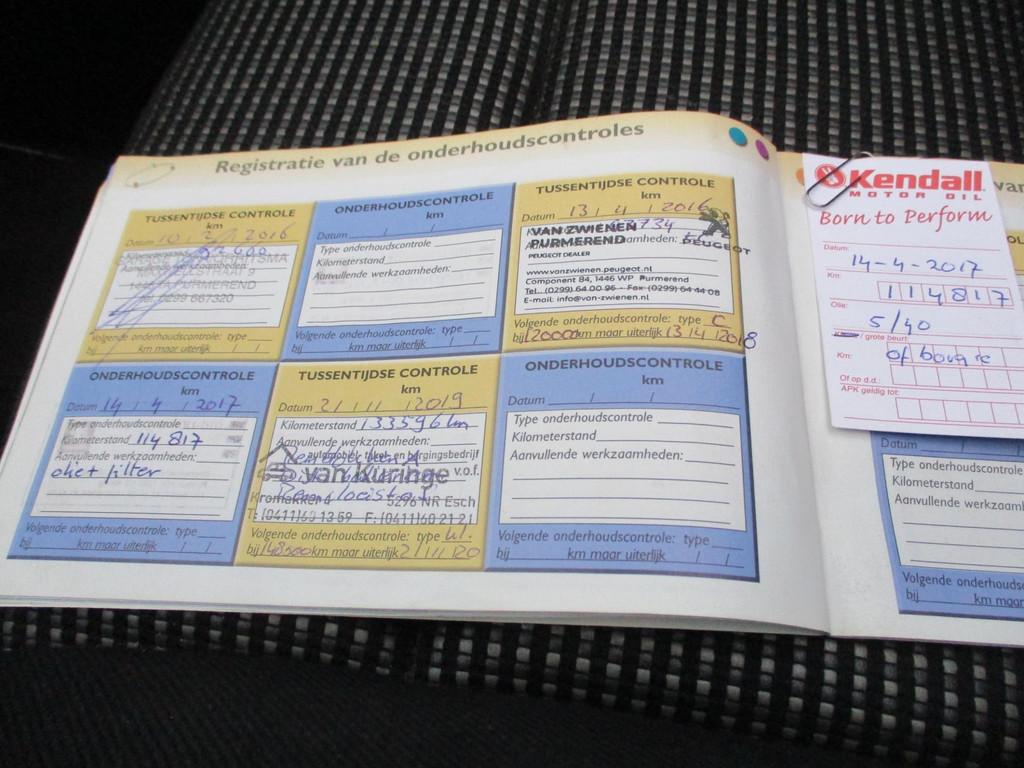 Registratie van de onderhoudscontroles
TUSSENTIJDSE CONTROLE
km
Datum 10 / 2 / 2016
Kilometerstand
Aanvullende werkzaamheden:
PURMEREND
Tel 0299 667320
Volgende onderhoudscontrole: type
bij km maar uiterlijk / /
ONDERHOUDSCONTROLE
km
Datum / /
Type onderhoudscontrole
Kilometerstand
Aanvullende werkzaamheden:
Volgende onderhoudscontrole: type
bij km maar uiterlijk / /
TUSSENTIJDSE CONTROLE
km
Datum 13 / 4 / 2016
VAN ZWIENEN
PURMEREND
PEUGEOT DEALER
PEUGEOT
www.vanzwienen.peugeot.nl
Component 84, 1446 WP Purmerend
Tel. (0299) 64 00 96 - Fax (0299) 64 44 08
E-mail: info@van-zwienen.nl
Volgende onderhoudscontrole: type C
bij 120000 km maar uiterlijk 13 / 4 / 2018
ONDERHOUDSCONTROLE
km
Datum 14 / 4 / 2017
Type onderhoudscontrole
Kilometerstand 114817
Aanvullende werkzaamheden:
olie + filter
Volgende onderhoudscontrole: type
bij km maar uiterlijk / /
TUSSENTIJDSE CONTROLE
km
Datum 21 / 11 / 2019
Kilometerstand 133596 km
Aanvullende werkzaamheden:
van Kuringe v.o.f.
Kromakker 4 5296 NR Esch
T: (0411) 60 13 59 F: (0411) 60 21 21
Volgende onderhoudscontrole: type kl.
bij 148500 km maar uiterlijk 21 / 11 / 20
ONDERHOUDSCONTROLE
km
Datum / /
Type onderhoudscontrole
Kilometerstand
Aanvullende werkzaamheden:
Volgende onderhoudscontrole: type
bij km maar uiterlijk / /
Kendall
MOTOR OIL
Born to Perform
Datum:
14-4-2017
Km:
114817
Olie:
5/40
/ grote beurt:
Km: of bougie
Of op d.d.:
APK geldig tot:
Datum /
Type onderhoudscontrole
Kilometerstand
Aanvullende
Volgende onderhoudsc
bij km maar